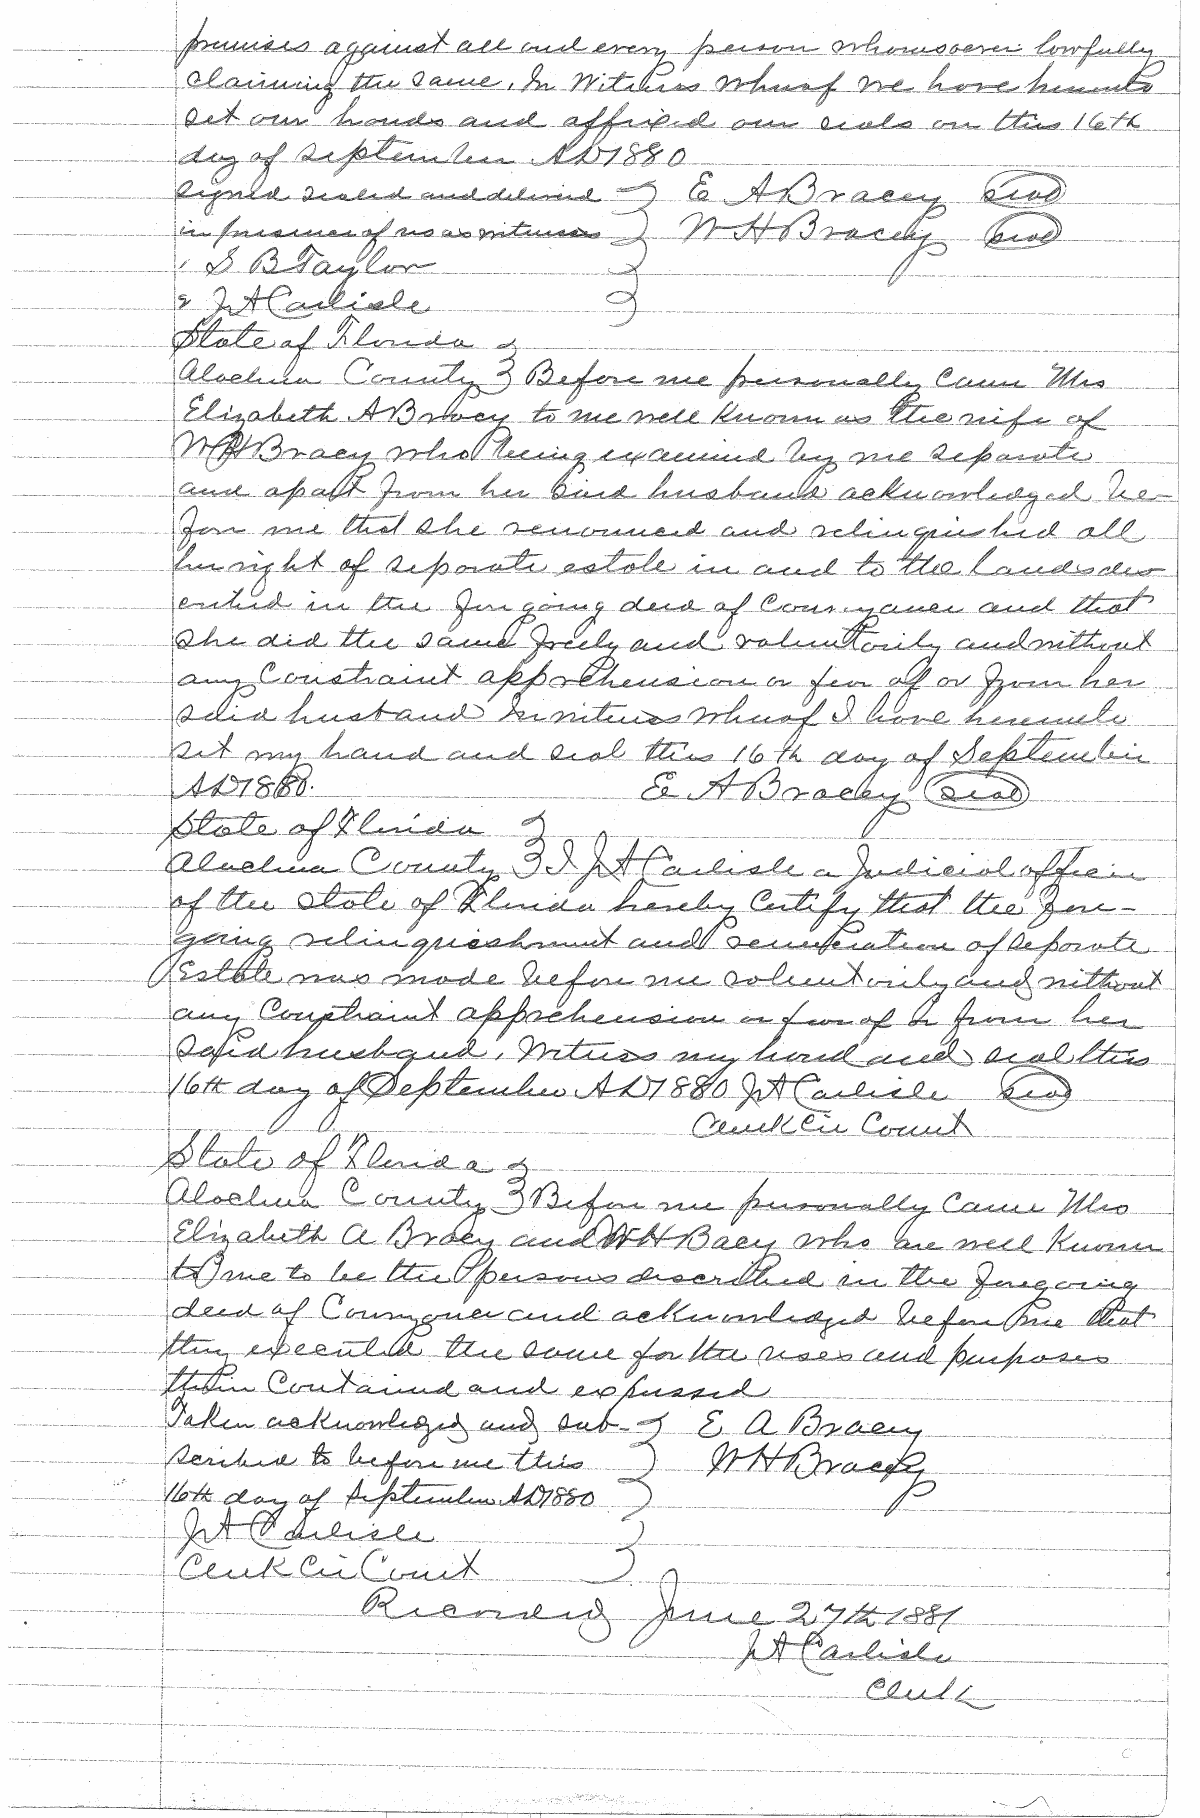 premises against all and every person whomsoever lawfully
claiming the same. In Witness whereof we have hereunto
set our hands and affixed our seals on this 16th
day of September AD 1880
signed sealed and delivered } E A Bracey (seal)
in presence of us as witnesses } W H Bracey (seal)
1 S B Taylor }
2 J A Carlisle }
State of Florida }
Alachua County } Before me personally Came Mrs
Elizabeth A Bracy to me well Known as the wife of
W H Bracy who being examined by me separate
and apart from her said husband acknowledged be-
fore me that she renounced and relinquished all
her right of separate estate in and to the Lands des
cribed in the foregoing deed of Conveyance and that
she did the same freely and voluntarily and without
any Constraint apprehension or fear of or from her
said husband In witness whereof I have hereunto
set my hand and seal this 16th day of September
AD 1880. E A Bracey (seal)
State of Florida }
Alachua County } I J A Carlisle a Judicial officer
of the State of Florida hereby Certify that the fore-
going relinquishment and renunciation of separate
Estate was made before me voluntarily and without
any Constraint apprehension or fear of or from her
said husband. Witness my hand and seal this
16th day of September AD 1880 J A Carlisle (seal)
Clerk Cir Court
State of Florida }
Alachua County } Before me personally Came Mrs
Elizabeth A Bracy and W H Bacy who are well Known
to me to be the persons described in the foregoing
deed of Conveyance and acknowledged before me that
they executed the same for the uses and purposes
therein Contained and expressed
Taken acknowledged and sub- } E A Bracey
scribed to before me this } W H Bracey
16th day of September AD 1880 }
J A Carlisle }
Clerk Cir Court }
Recorded June 27th 1881
J A Carlisle
Clerk